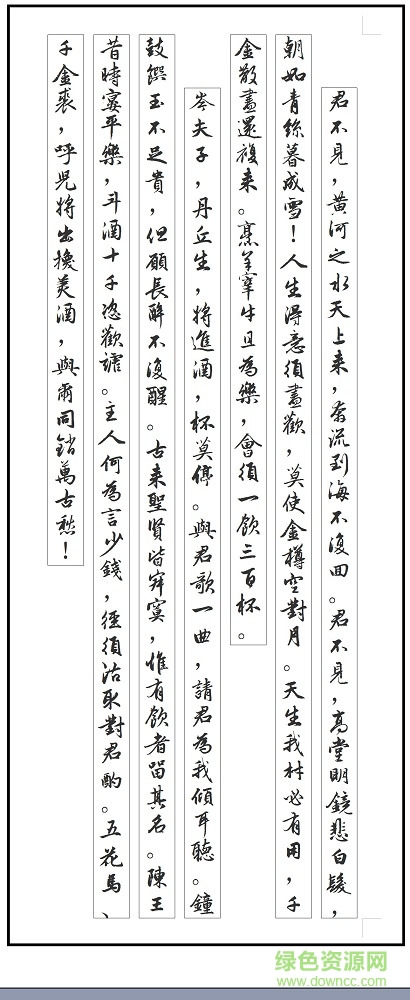 君不見，黃河之水天上来，奔流到海不復回。君不見，高堂明鏡悲白髮，
朝如青絲暮成雪！人生得意須盡歡，莫使金樽空對月。天生我材必有用，千
金散盡還複来。烹羊宰牛且為樂，會須一飲三百杯。
岑夫子，丹丘生，將進酒，杯莫停。與君歌一曲，請君為我傾耳聽。鐘
鼓饌玉不足貴，但願長醉不復醒。古来聖賢皆寂寞，惟有飲者留其名。陳王
昔時宴平樂，斗酒十千恣歡謔。主人何為言少錢，徑須沽取對君酌。五花馬、
千金裘，呼兒將出換美酒，與爾同銷萬古愁！
绿色资源网
www.downcc.com